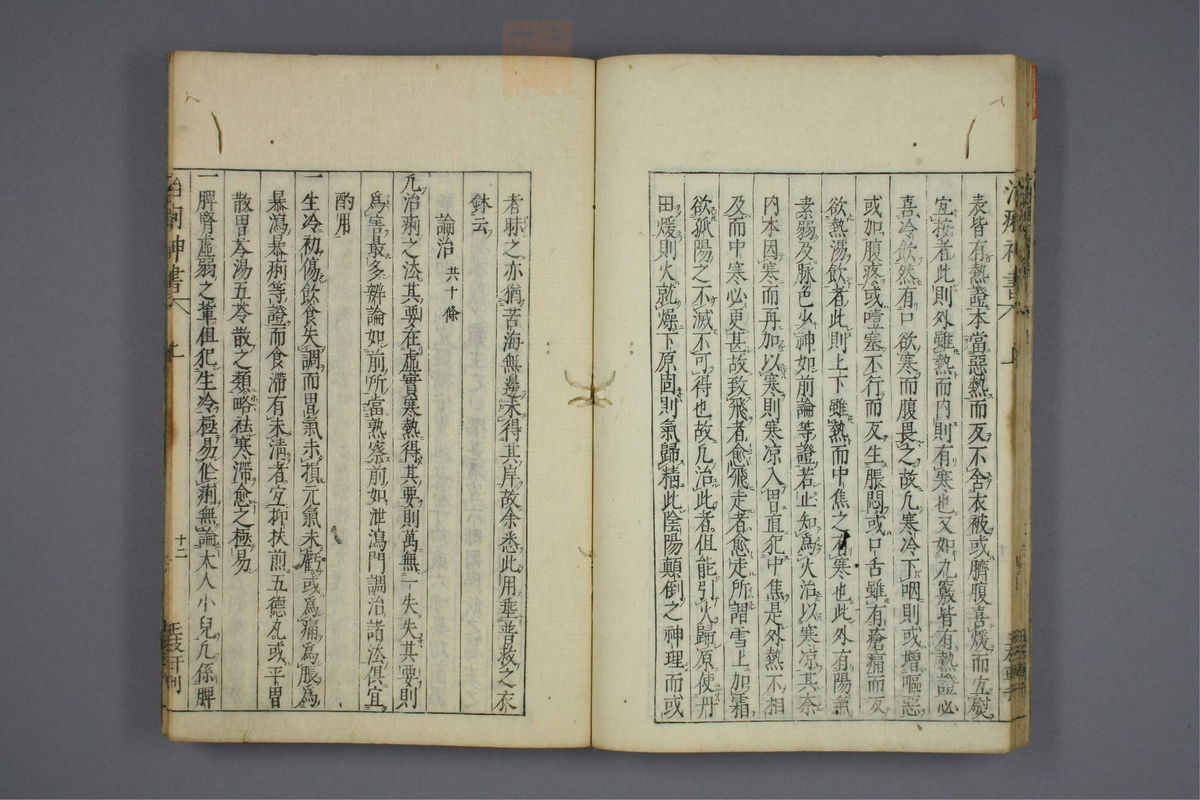 表皆有熱證本當惡熱而反不舍衣被或臍腹喜煖而宜熨
宜按者此則外雖熱而内則有寒也又如九竅皆有熱證必
喜冷飲然有口欲寒而腹畏之故凢寒冷下咽則或增嘔惡
或加腹疼或噎塞不行而反生脹悶或口舌雖有瘡痛而反
欲熱湯飲者此則上下雖熱而中焦之有寒也此外有陽氣
素弱及脉色少神如前論等證若止知爲火治以寒凉其柰
内本因寒而再加以寒則寒凉入胃直犯中焦是外熱不相
及而中寒必更甚故致飛者愈飛走者愈走所謂雪上加霜
欲孤陽之不滅不可得也故凢治此者但能引火歸原使丹
田煖則火就燥下原固則氣歸精此陰陽顛倒之神理而或
者昧之亦猶苦海無邊未得其岸故余悉此用垂普救之衣
鉢云
論治 共十條
凢治痢之法其要在虛實寒熱得其要則萬無一失失其要則
爲害最多辨論如前所當熟察前如泄瀉門調治諸法俱宜
酌用
一生冷初傷飲食失調而胃氣未損元氣未虧或爲痛爲脹爲
暴瀉暴痢等證而食滯有未清者宜抑扶煎五德丸或平胃
散胃苓湯五苓散之類略袪寒滯愈之極易
一脾腎虛弱之軰但犯生冷極易作痢無論大人小兒凢係脾
治痢神書 上
十二